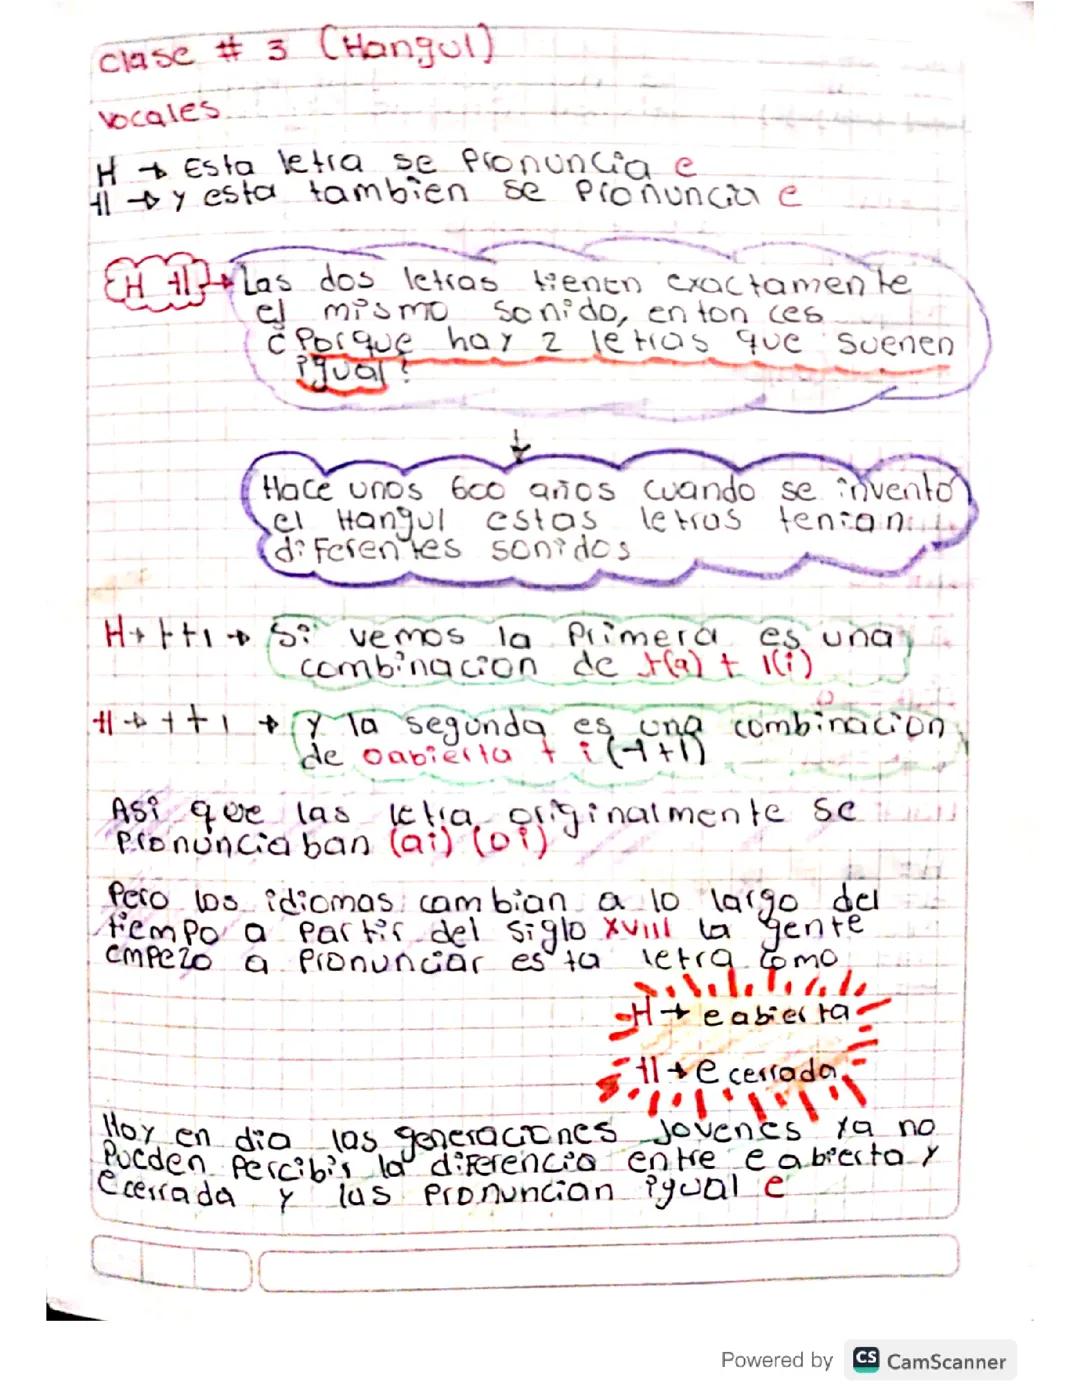 Clase # 3 (Hangul)
Vocales
ㅐ → Esta letra se Pronuncia e
ㅔ → y esta tambien se Pronuncia e
ㅐ ㅔ → Las dos letras tienen exactamente
el mismo sonido, enton ces
¿Porque hay 2 letras que suenen
igual?
↓
Hace unos 600 años cuando se invento
el Hangul estas letras tenian
diferentes sonidos
ㅐ→ ㅏ+ㅣ → Si vemos la Primera es una
combinacion de ㅏ(a) + ㅣ(i)
ㅔ → ㅓ+ㅣ → y la segunda es una combinacion
de o abierta + i (ㅓ+ㅣ)
Asi que las letra originalmente se
Pronunciaban (ai) (oi)
Pero los idiomas cambian a lo largo del
tiempo a partir del siglo XVIII la gente
empezo a Pronunciar esta letra como
ㅐ → e abierta
ㅔ → e cerrada
Hoy en dia las generaciones Jovenes ya no
Pueden Percibir la diferencia entre e abierta y
e cerrada y las Pronuncian igual e
Powered by CS CamScanner